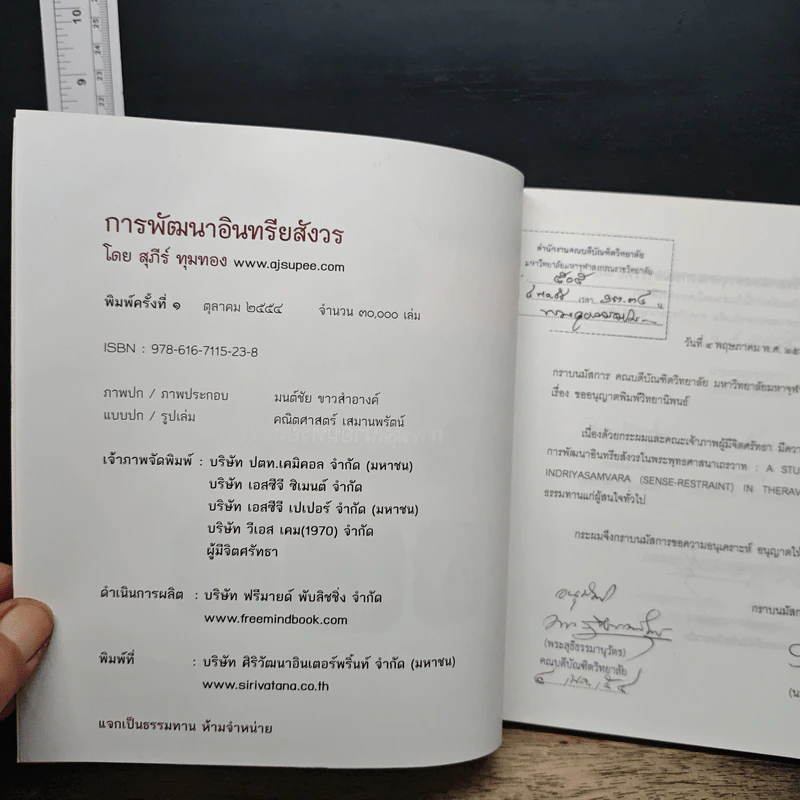 10
9
25
24
23
22
การพัฒนาอินทรียสังวร
โดย สุภีร์ ทุมทอง www.ajsupee.com
พิมพ์ครั้งที่ ๑ ตุลาคม ๒๕๕๔ จำนวน ๓๐,๐๐๐ เล่ม
ISBN : 978-616-7115-23-8
ภาพปก / ภาพประกอบ มนต์ชัย ขาวสำอางค์
แบบปก / รูปเล่ม คณิตศาสตร์ เสมานพรัตน์
เจ้าภาพจัดพิมพ์ : บริษัท ปตท.เคมิคอล จำกัด (มหาชน)
บริษัท เอสซีจี ซิเมนต์ จำกัด
บริษัท เอสซีจี เปเปอร์ จำกัด (มหาชน)
บริษัท วีเอส เคม(1970) จำกัด
ผู้มีจิตศรัทธา
ดำเนินการผลิต : บริษัท ฟรีมายด์ พับลิชชิ่ง จำกัด
www.freemindbook.com
พิมพ์ที่ : บริษัท ศิริวัฒนาอินเตอร์พริ้นท์ จำกัด (มหาชน)
www.sirivatana.co.th
แจกเป็นธรรมทาน ห้ามจำหน่าย
สำนักงานคณบดีบัณฑิตวิทยาลัย
มหาวิทยาลัยมหาจุฬาลงกรณราชวิทยาลัย
๕๐๕
เวลา น.
วันที่ ๔ พฤษภาคม พ.ศ. ๒๕
กราบนมัสการ คณบดีบัณฑิตวิทยาลัย มหาวิทยาลัยมหาจุฬา
เรื่อง ขออนุญาตพิมพ์วิทยานิพนธ์
เนื่องด้วยกระผมและคณะเจ้าภาพผู้มีจิตศรัทธา มีความ
การพัฒนาอินทรียสังวรในพระพุทธศาสนาเถรวาท : A STU
INDRIYASAMVARA (SENSE-RESTRAINT) IN THERAV
ธรรมทานแก่ผู้สนใจทั่วไป
กระผมจึงกราบนมัสการขอความอนุเคราะห์ อนุญาตให้
อนุมัติ
กราบนมัส
(พระสุธีธรรมานุวัตร)
คณบดีบัณฑิตวิทยาลัย
๔ พ.ค. ๕๔
(น